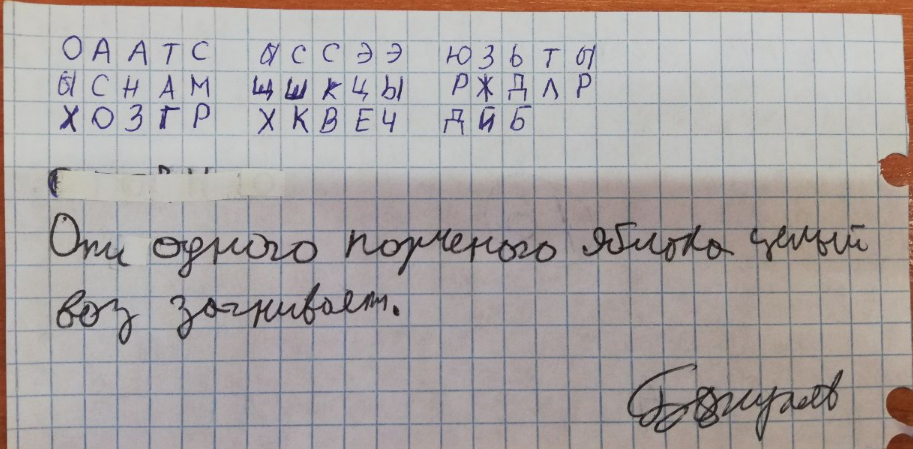 ОААТС ЫССЭЭ ЮЗЬТЫ
ЫСНАМ ЩШКЦЫ РЖДЛР
ХЮЗГР ХКВЕЧ ДЙБ
От одного порченого яблока целый
воз загнивает.